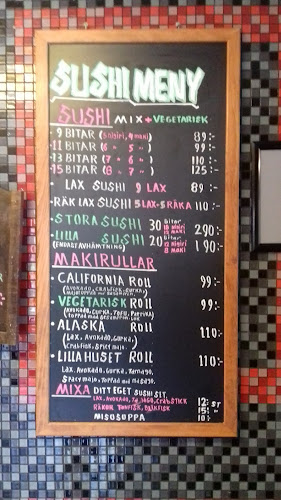 SUSHI MENY
SUSHI MIX + VEGETARISK
• 9 BITAR (5 nigiri, 4 maki) 89:-
• 11 BITAR (6 " 5 " ) 99:-
• 13 BITAR (7 " 6 " ) 110:-
• 15 BITAR (8 " 7 " ) 125:-
• LAX SUSHI 9 LAX 89:-
• RÄK LAX SUSHI 5 LAX-5 RÄKA 110:-
• STORA SUSHI 30 Bitar 290:-
LILLA SUSHI 20 Bitar 190:-
(ENDAST AVHÄMTNING) 12 nigiri 8 maki
MAKIRULLAR
• CALIFORNIA Roll 99:-
(Avokado, Gurka,
VEGETARISK Roll 99:-
(Avokado, Gurka, Tofu, Paprika)
• ALASKA Roll 110:-
(Lax, Avokado, Gurka,
Crabfish, Spicy majo.
• LILLA HUSET Roll 110:-
Lax, Avokado, Gurka, Tamago,
Spicy majo. Toppad med masago.
MIXA DITT EGET SUSHI SJT.
LAX, AVOKADO, CRABSTICK 12:- ST
RÄKOR 15:-
MISOSOPPA 10:-